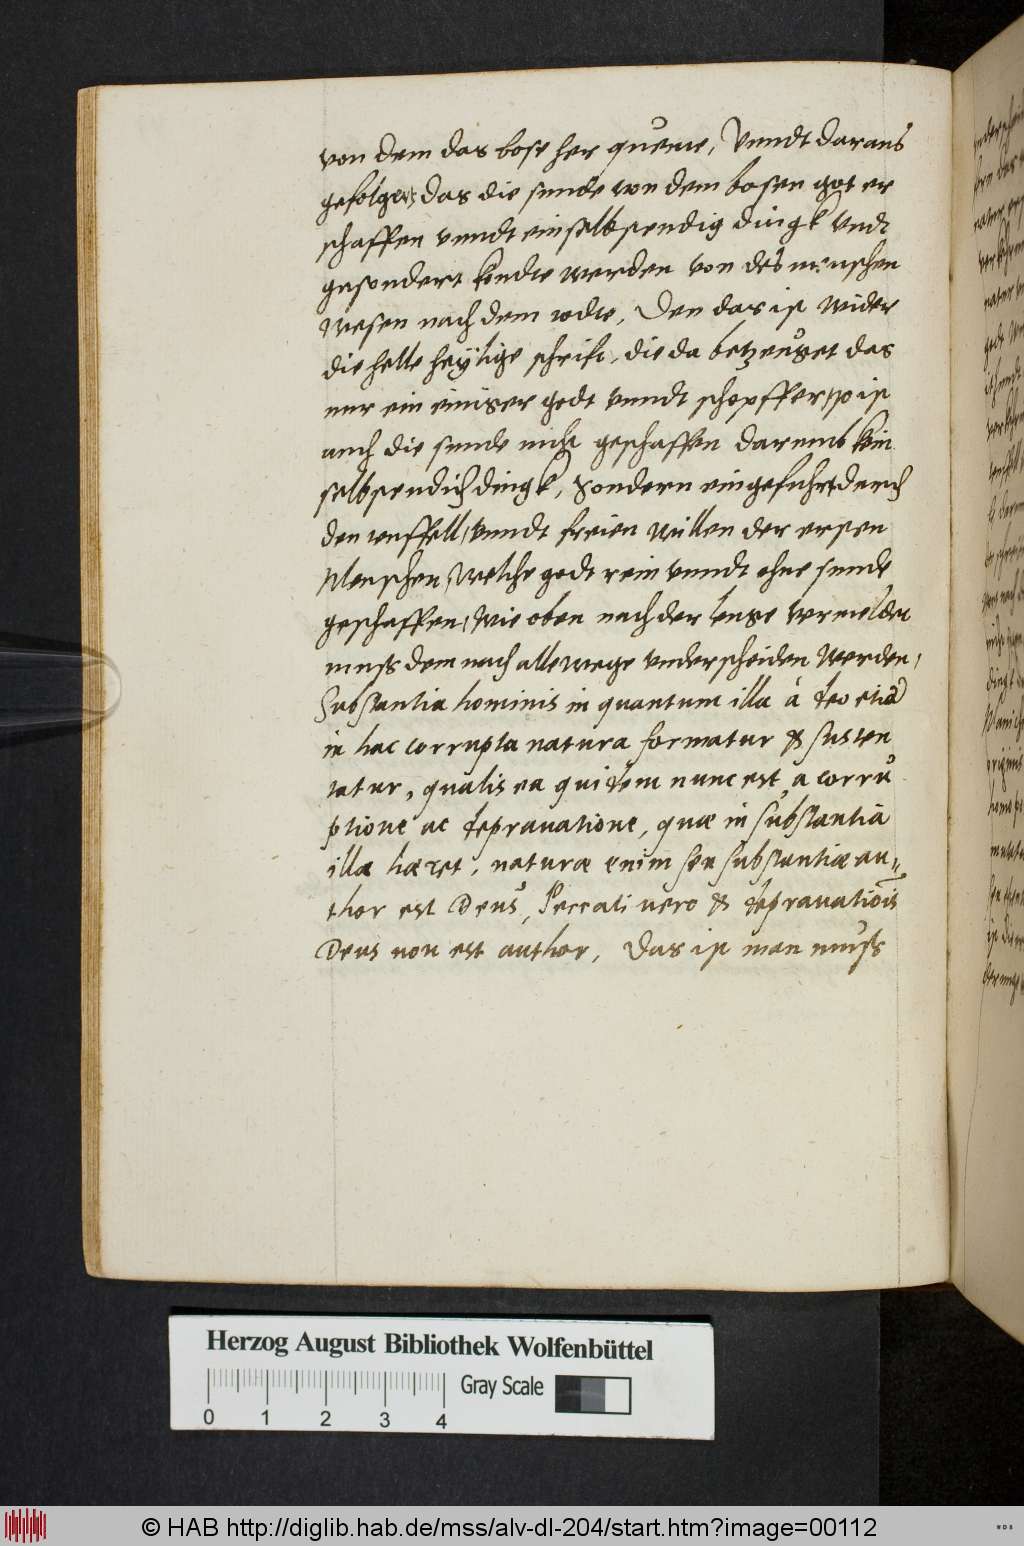 von dem das bose her queme, Vnndt daraus
gefolget, das die sunde von dem bosen got er
schaffen vnndt ein selbstendig dingk vndt
gesondert kondte werden von des menschen
wesen nach dem todte, Den das ist wider
die helle heÿlige schrifft, die da betzeuget das
nur ein einiger godt vnndt schopffer, so ist
auch die sunde nicht geschaffen darumb kein
selbstendich dingk, Sondern eingefuhrt durch
den teuffell, vnndt freien willen der ersten
Menschen, welche godt rein vnndt ohne sunde
geschaffen, wie oben nach der lenge vermeldet
muss dem nach allewege vnderscheiden werden,
Substantia hominis in quantum illa à deo etiã
in hac corrupta natura formatur & susten
tatur, qualis ea quidem nunc est, a corru
ptione ac deprauatione, quæ in substantia
illa hæret, naturæ enim seu substantiæ au„
thor est Deus, Peccati uero & deprauatiois
Deus non est author, Das ist man muss
Herzog August Bibliothek Wolfenbüttel
Gray Scale
0 1 2 3 4
© HAB http://diglib.hab.de/mss/alv-dl-204/start.htm?image=00112